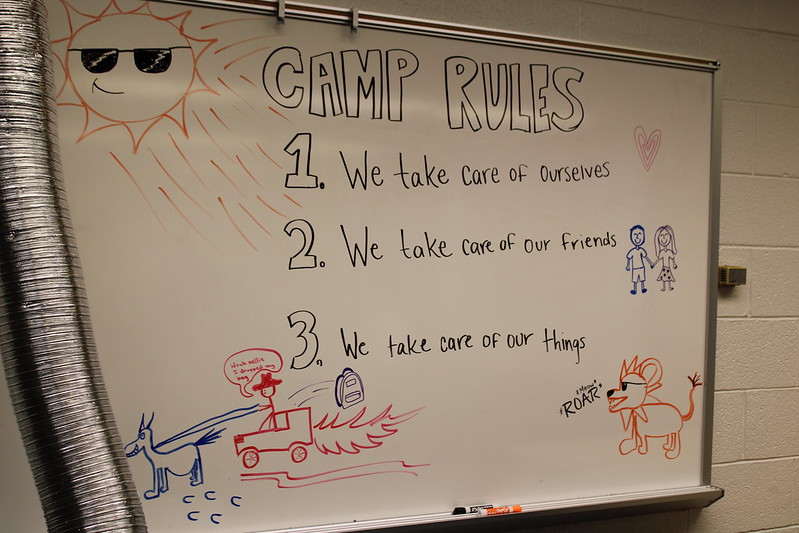 CAMP RULES
1. We take care of ourselves
2. We take care of our friends
3. We take care of our things
Woah nellie
I dropped my
bag
*Meow*
*ROAR*